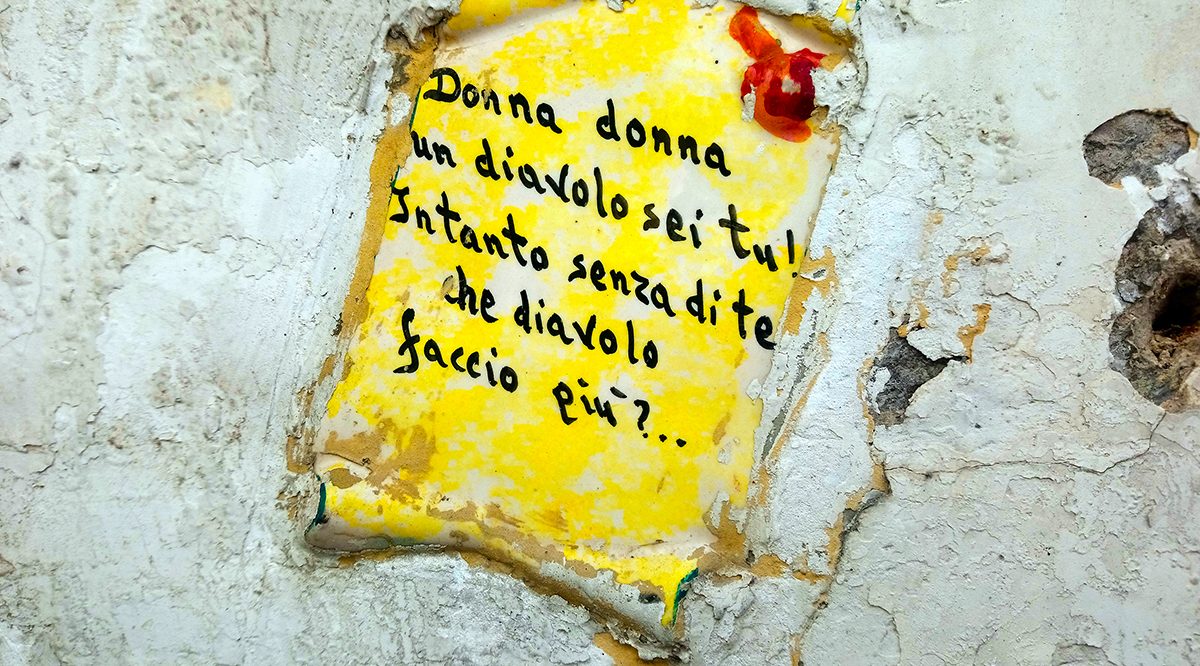 Donna donna
un diavolo sei tu!
Intanto senza di te
che diavolo
faccio più?...